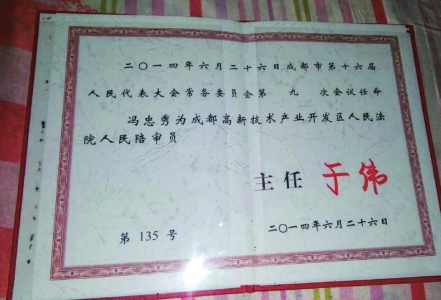 二〇一四年六月二十六日成都市第十六届
人民代表大会常务委员会第 九 次会议任命
冯忠秀为成都高新技术产业开发区人民法
院人民陪审员
主任 于伟
第 135 号 二〇一四年六月二十六日